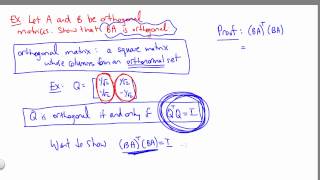 EX Let A and B be orthogonal
matrices. Show that BA is orthogonal
orthogonal matrix : a square matrix
whose columns form an orthonormal set
Ex: Q = [1/√2 1/√2
1/√2 -1/√2]
Q is orthogonal if and only if QᵀQ = I
Want to show (BA)ᵀ(BA) = I ...
Proof : (BA)ᵀ(BA)
=